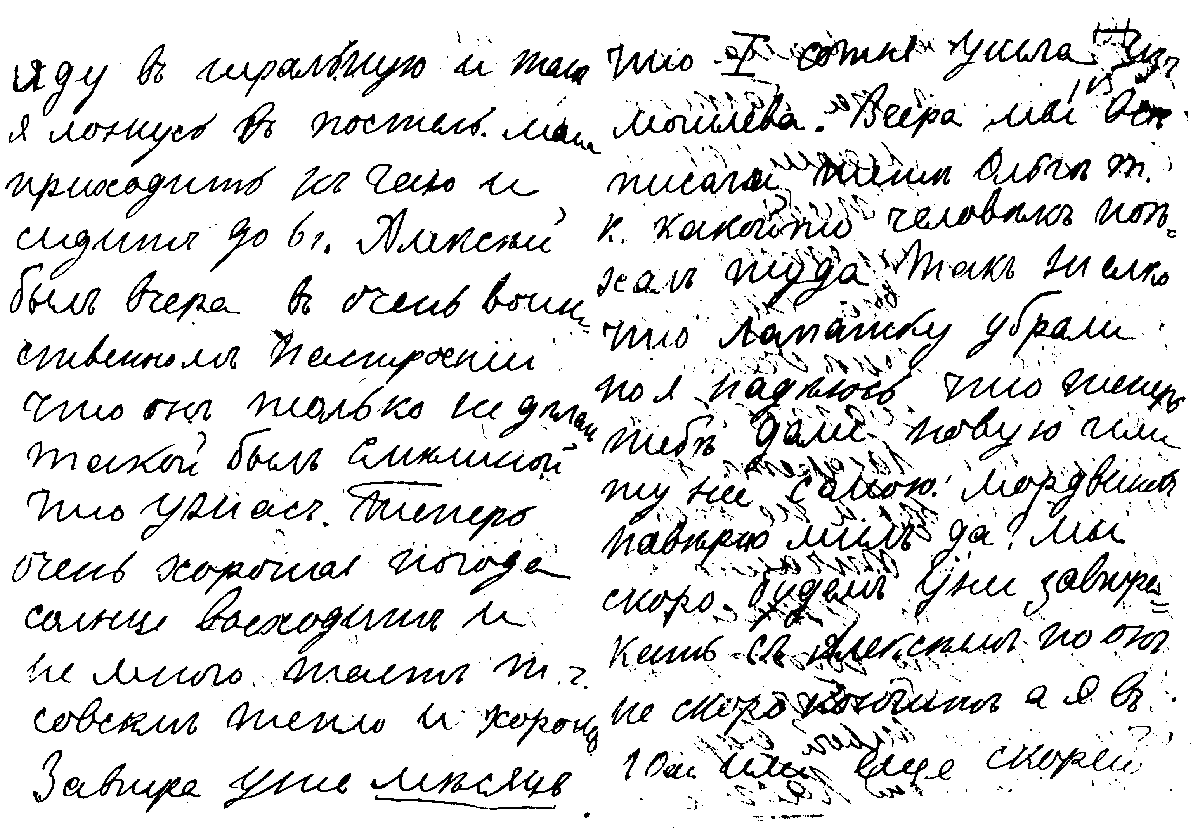 иду въ спальную и тамъ
я ложусь въ постель. Мама
приходитъ къ чаю и
сидитъ до 6 г. Алексѣй
былъ вчера въ очень воин-
ственномъ настроении
что онъ только не дѣлалъ
такой былъ смѣшной
что ужасъ. Теперь
очень хорошая погода
солнце восходитъ и
не много таетъ т. ч.
совсѣмъ тепло и хорошо
Завтра уже мѣсяцъ
что I сотня ушла изъ
Могилева. Вчера мы
писали тетѣ Ольгѣ т.
к. какой то человѣкъ поѣ-
халъ туда. Такъ жалко
что лопатку убрали
но я надѣюсь что теперь
тебѣ дали новую или
ту же самою. Мордвиновъ
навѣрно милъ да? Мы
скоро будемъ уже завтра-
кать съ Алексѣемъ но онъ
не скоро кончитъ а я въ
10 м или еще скорей